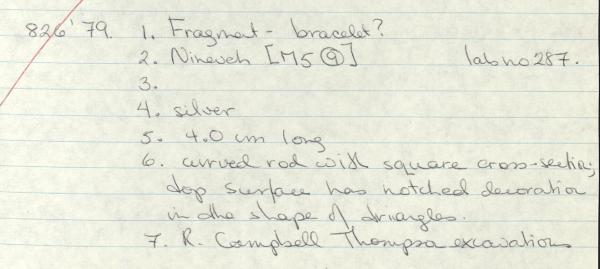 826'79. 1. Fragment - bracelet?
2. Nineveh [M5 ⑨] lab no 287.
3.
4. silver
5. 4.0 cm long
6. curved rod with square cross-section;
top surface has notched decoration
in the shape of triangles.
7. R. Campbell Thompson excavations